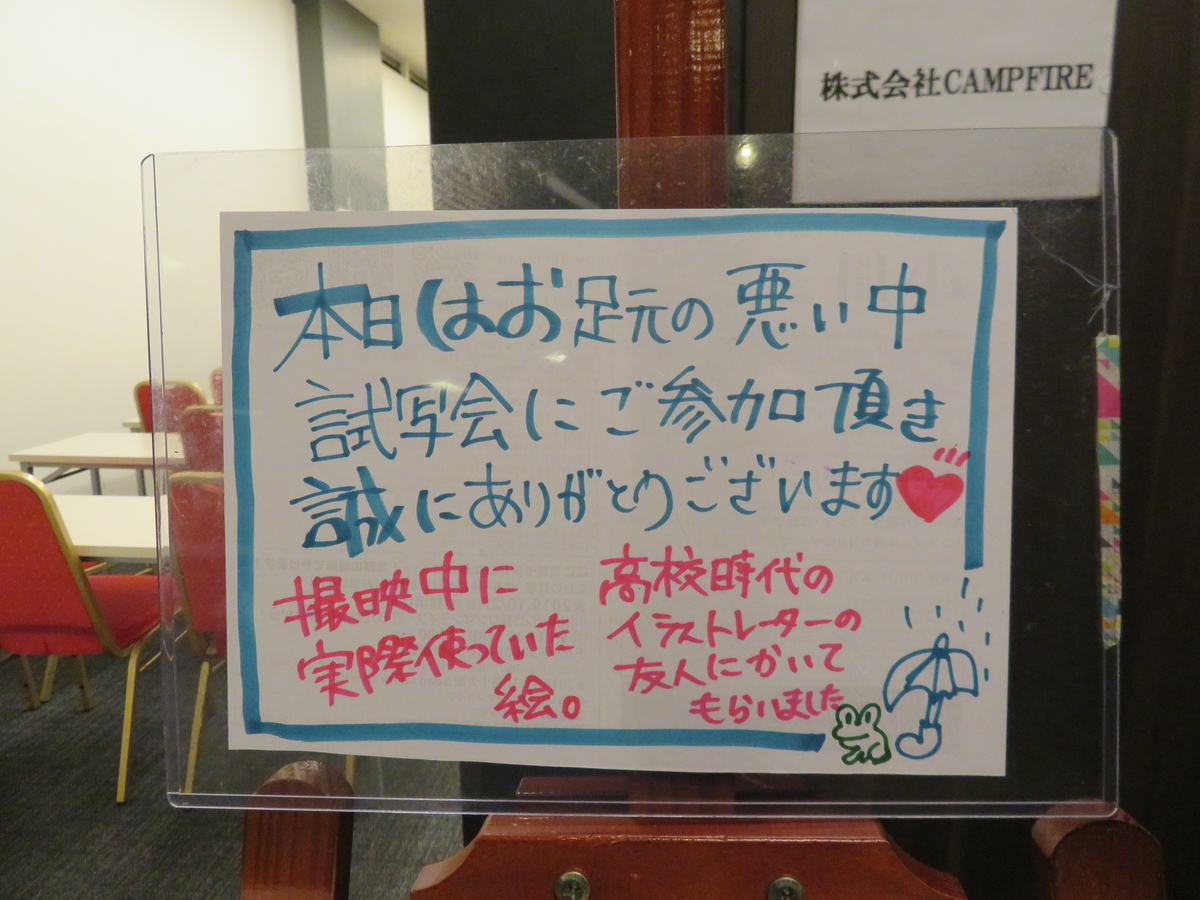 株式会社CAMPFIRE
本日はお足元の悪い中
試写会にご参加頂き
誠にありがとうございます
撮映中に
実際使っていた
絵。
高校時代の
イラストレーターの
友人にかいて
もらいました